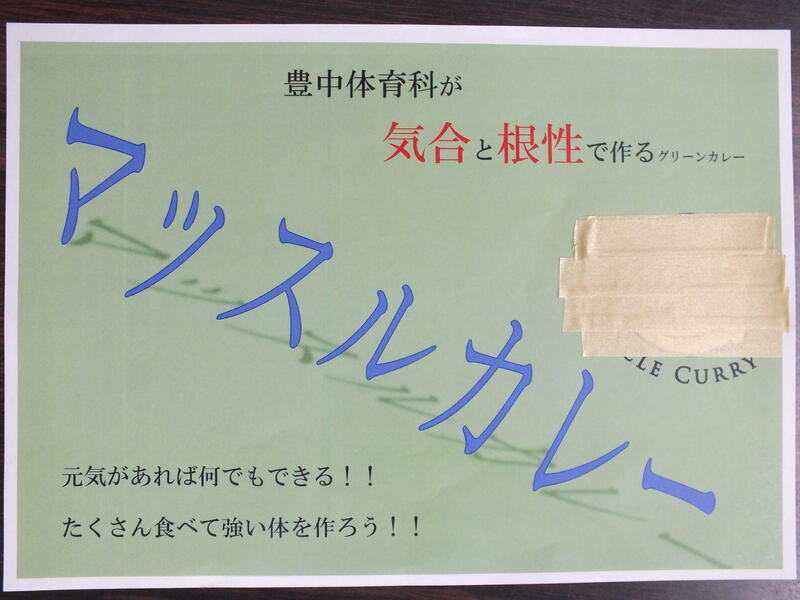 豊中体育科が
気合と根性で作るグリーンカレー
マッスルカレー
CLE CURRY
元気があれば何でもできる！！
たくさん食べて強い体を作ろう！！